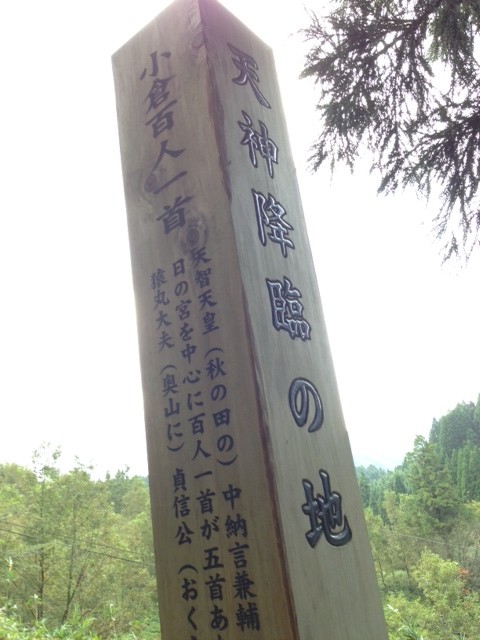 天神降臨の地
小倉百人一首
天智天皇（秋の田の）中納言兼輔
日の宮を中心に百人一首が五首あ
猿丸大夫（奥山に）貞信公（おぐ